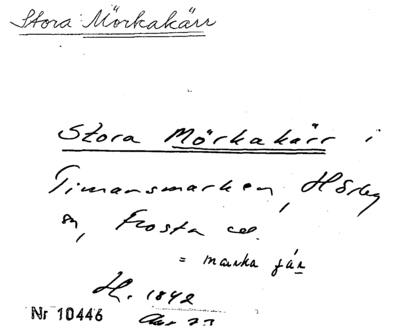 Stora Mörkakärr
Stora Mörkakärr i
Timansmarken, Hörby
sn, Frosta
= marka jär
H. 1842
Nr 10446